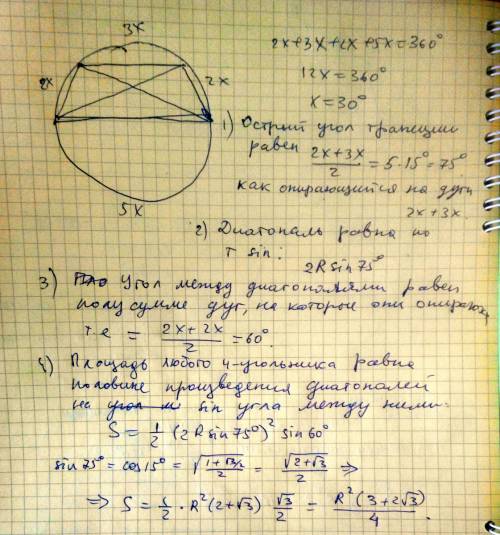 3x
2x
2x
5x
2x+3x+2x+5x=360°
12x=360°
x=30°
1) Острый угол трапеции
равен (2x+3x)/2 = 5·15° = 75°
как опирающийся на дуги
2x+3x.
2) Диагональ равна по
т sin:
2R sin 75°
3) Угол между диагоналями равен
полусумме дуг, на которые они опираются
т.е = (2x+2x)/2 = 60°.
4) Площадь любого 4-угольника равна
половине произведения диагоналей
на sin угла между ними:
S = 1/2 (2R sin 75°)² sin 60°
sin 75° = cos 15° = √((1+√3/2)/2) = √(2+√3)/2 ⇒
⇒ S = 1/2 · R²(2+√3) √3/2 = R²(3+2√3)/4.